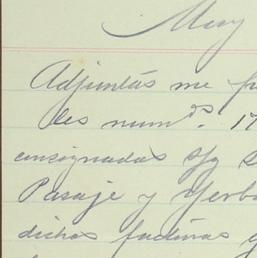 Muy
Adjuntas me p
les numos. 17
consignadas s/g
Pasaje y Yerb
dichas facturas